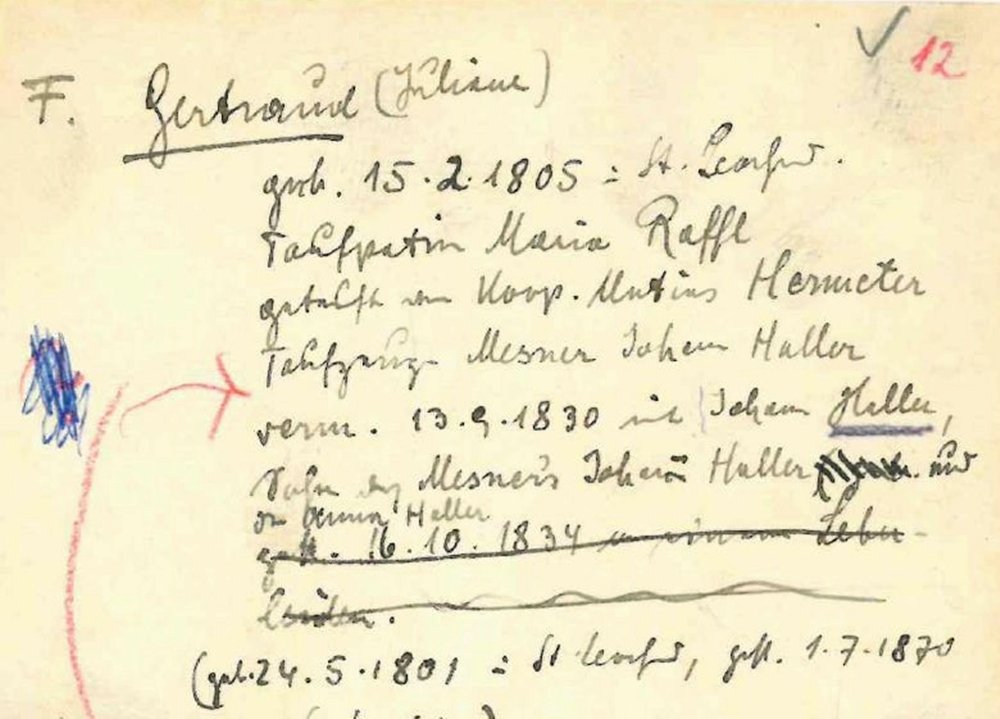 12
F. Gertraud (Juliane)
geb. 15.2.1805 in St. Leonhard.
Taufpatin Maria Raffl
getauft von Koop. Matias Hermeter
Taufzeuge Mesner Johann Haller
verm. 13.9.1830 mit Johann Haller,
Sohn des Mesners Johann Haller und
der Haller
gest. 16.10.1834 an einem Leber-
leiden.
(geb. 24.5.1801 in St Leonhard, gest. 1.7.1870